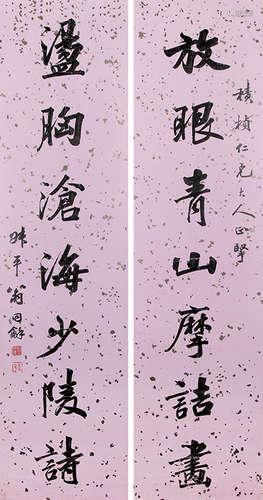 積楨仁兄大人正擊
放眼青山摩詰畫
盪胸滄海少陵詩
叔平翁同龢